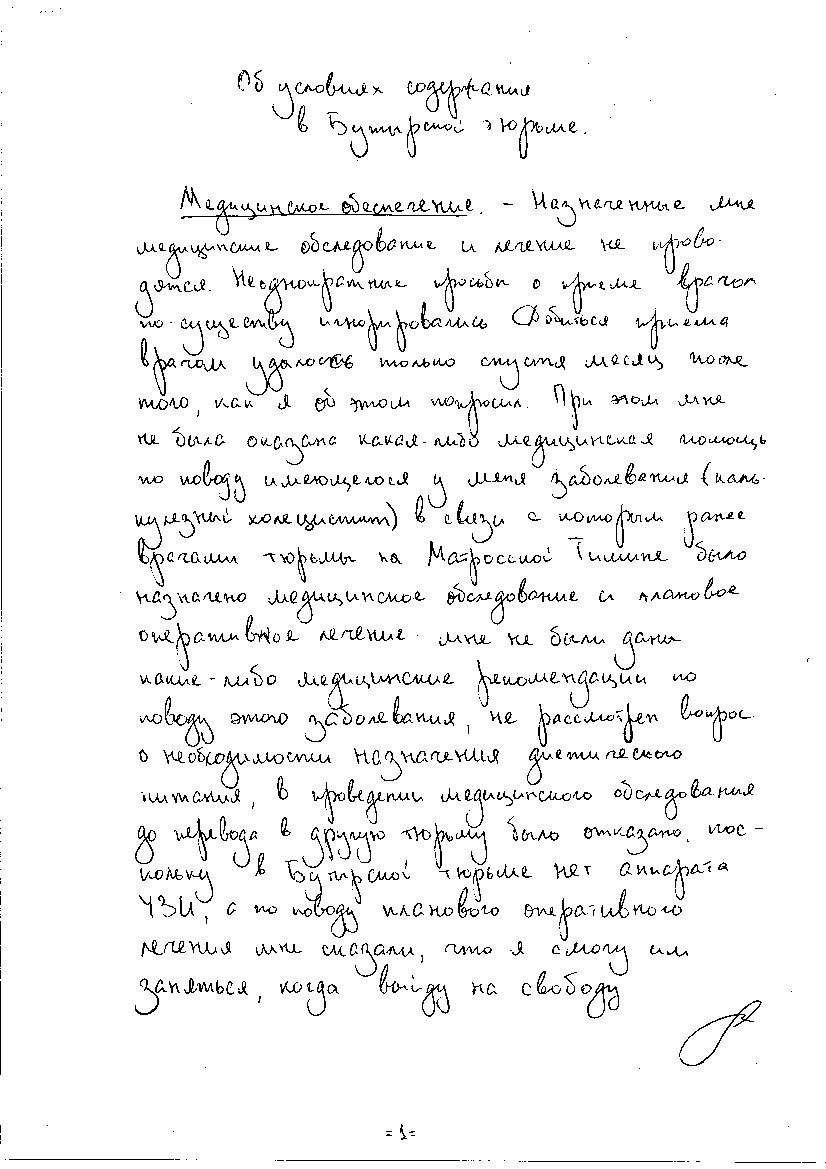 Об условиях содержания
в Бутырской тюрьме.
Медицинское обеспечение. - Назначенные мне
медицинские обследование и лечение не прово-
дятся. Неоднократные просьбы о приеме врачом
по-существу игнорировались. Добиться приема
врачом удалось только спустя месяц после
того, как я об этом попросил. При этом мне
не была оказана какая-либо медицинская помощь
по поводу имеющегося у меня заболевания (каль-
кулезный холецистит) в связи с которым ранее
врачами тюрьмы на Матросской Тишине было
назначено медицинское обследование и плановое
оперативное лечение. мне не были даны
какие-либо медицинские рекомендации по
поводу этого заболевания, не рассмотрен вопрос
о необходимости назначения диетического
питания, в проведении медицинского обследования
до перевода в другую тюрьму было отказано, пос-
кольку в Бутырской тюрьме нет аппарата
УЗИ, а по поводу планового оперативного
лечения мне сказали, что я смогу им
заняться, когда выйду на свободу
=1=